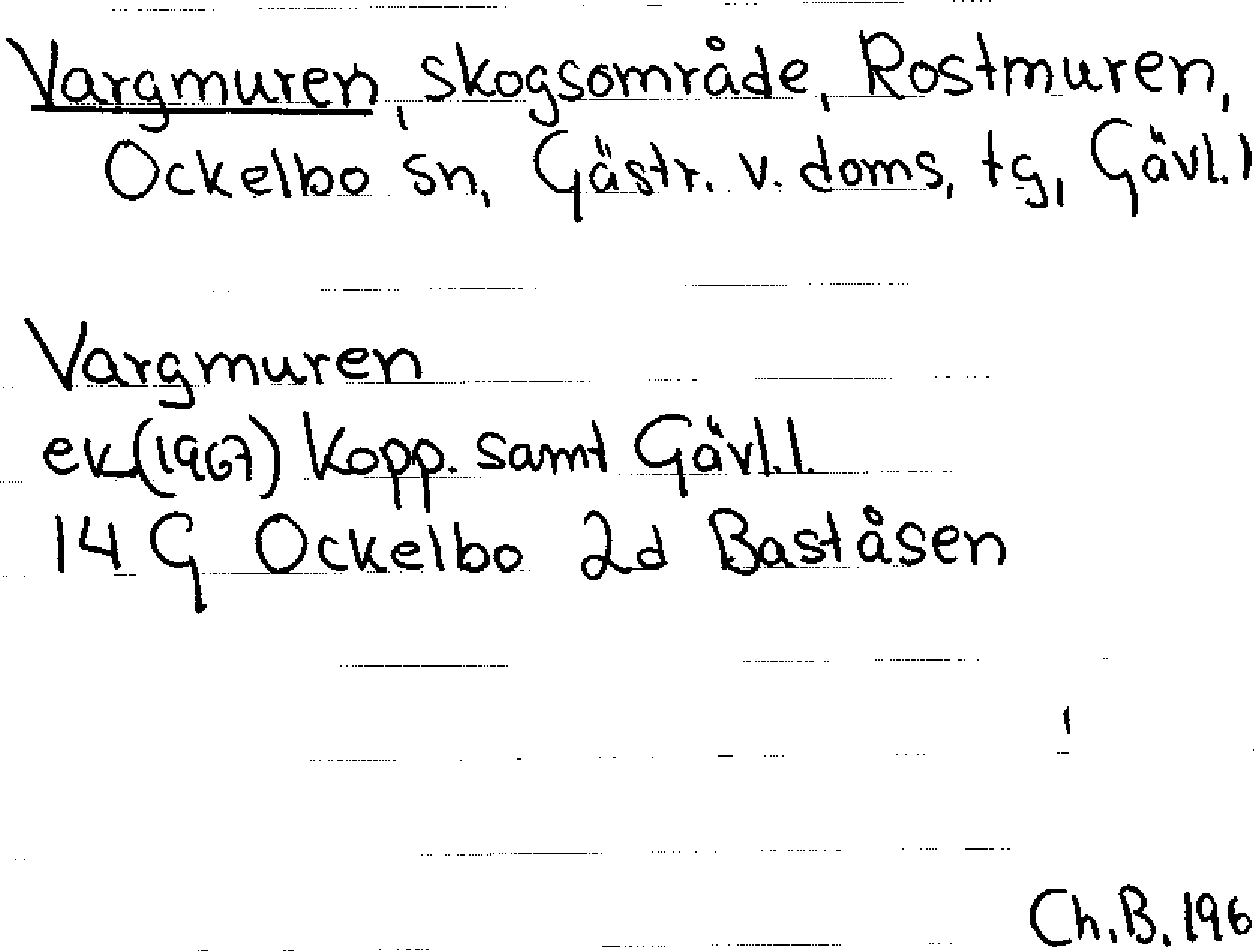 Vargmuren, skogsområde, Rostmuren,
Ockelbo sn, Gästr. v. doms, tg, Gävl.l
Vargmuren
ek (1967) Kopp. samt Gävl.l.
14 G Ockelbo 2d Baståsen
Ch.B. 196